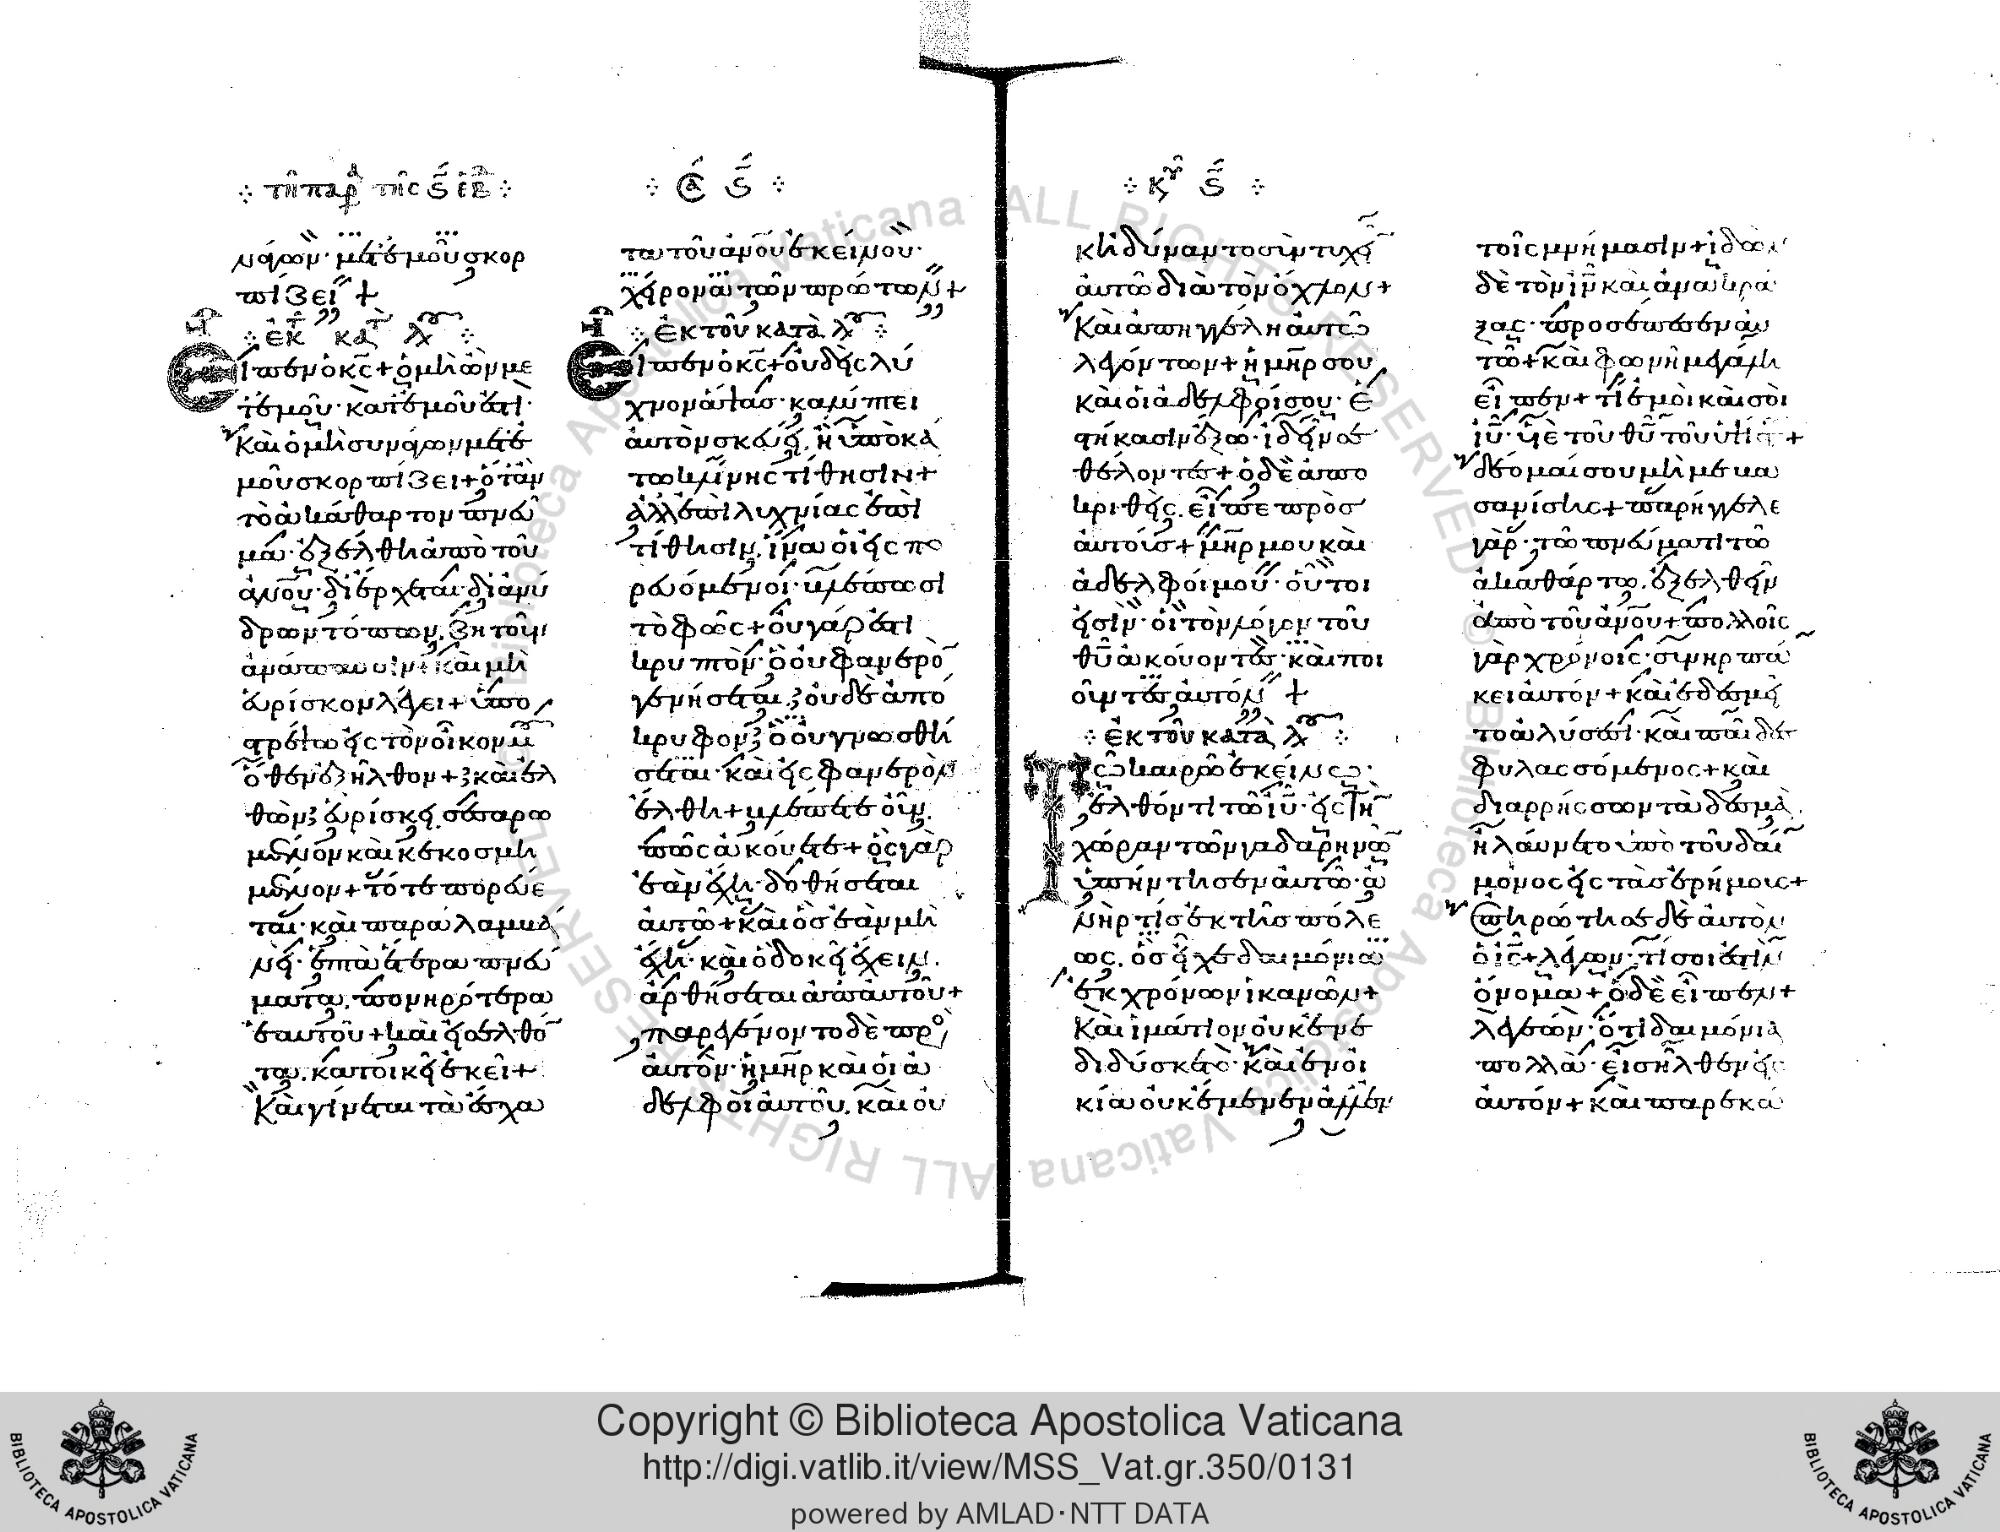 τῆ παρ τῆς ς ἑβ
νάγων· μετ ἐμοῦ σκορ
πίζει +
ἐκ κατ λγ
Εἶπεν ὁ κς + ὁ μὴ ὢν με
τ ἐμοῦ· κατ ἐμοῦ ἐστι·
Καὶ ὁ μὴ συνάγων μετ ἐ
μοῦ σκορπίζει + ὅταν
τὸ ἀκάθαρτον πνεῦ
μα· ἐξέλθη ἀπὸ τοῦ
ἀνοῦ· διέρχεται· δι ἀνύ
δρων τόπων, ζητοῦν
ἀνάπαυσιν + καὶ μὴ
εὑρίσκον λέγει + ὑπο
στρέψω εἰς τὸν οἶκον μου
ὅθεν ἐξῆλθον + καὶ ἐλ
θὸν εὑρίσκει, σεσαρω
μένον καὶ κεκοσμη
μένον + τότε πορεύε
ται· καὶ παραλαμβά
νει· ἑπτὰ ἕτερα πνεύ
ματα, πονηρότερα
ἑαυτοῦ + καὶ εἰσελθό
τα, κατοικεῖ ἐκεῖ +
Καὶ γίνεται τὰ ἔσχα
α ς
τα τοῦ ἀνου ἐκείνου·
χείρονα τῶν πρώτων +
ἐκ τοῦ κατὰ λγ
Εἶπεν ὁ κς + οὐδεὶς λύ
χνον ἅψας· καλύπτει
αὐτὸν σκεύει, ἢ ὑποκά
τω κλίνης τίθησιν +
ἀλλ ἐπὶ λυχνίας ἐπι
τίθησιν, ἵνα οἱ εἰσπο
ρευόμενοι· βλέπωσι
τὸ φῶς + οὐ γάρ ἐστι
κρυπτὸν· ὃ οὐ φανερὸ
γενήσεται, οὐδὲ ἀπό
κρυφον ὃ οὐ γνωσθή
σεται· καὶ εἰς φανερὸν
ἔλθη + βλέπετε οὖν,
πῶς ἀκούετε + ὃς γὰρ
ἐὰν ἔχη· δοθήσεται
αὐτῶ + καὶ ὃς ἐὰν μὴ
ἔχη· καὶ ὃ δοκεῖ ἔχειν,
ἀρθήσεται ἀπ αὐτοῦ +
παρεγένοντο δὲ πρὸ
αὐτὸν· ἡ μηρ καὶ οἱ ἀ
δελφοὶ αὐτοῦ, καὶ οὐ
κυ ς
κ ἠδύναντο συντυχεῖ
αὐτῶ διὰ τὸν ὄχλον +
Καὶ ἀπηγγέλη αὐτῶ
λεγόντων + ἡ μηρ σου
καὶ οἱ ἀδελφοί σου· ἑ
στήκασιν ἔξω· ἰδεῖν σε
θέλοντες + ὁ δὲ ἀπο
κριθεὶς, εἶπε πρὸς
αὐτούς + μηρ μου καὶ
ἀδελφοί μου· οὗτοι
εἰσὶν· οἱ τὸν λόγον τοῦ
θυ ἀκούοντες· καὶ ποι
οῦντες αὐτόν +
ἐκ τοῦ κατὰ λγ
Τῶ καιρῶ ἐκείνω·
ἐλθόντι τῶ ιυ· εἰς τὴ
χώραν τῶν γαδαρηνῶ
ὑπήντησεν αὐτῶ· ἀ
νήρ τίς ἐκ τῆς πόλε
ως, ὃς εἶχε δαιμόνια
ἐκ χρόνων ἱκανῶν +
Καὶ ἱμάτιον οὐκ ἐνε
διδύσκετο· καὶ ἐν οἰ
κία οὐκ ἔμενεν ἀλλ ἐν
τοῖς μνήμασιν + ἰδὼν
δὲ τὸν ιν καὶ ἀνακρά
ξας· προσέπεσεν αὐ
τῶ + καὶ φωνῆ μεγάλη
εἶπεν + τί ἐμοὶ καὶ σοὶ
ιυ· υἱὲ τοῦ θυ τοῦ ὑψίστ +
δέομαί σου μή με βα
σανίσης + παρήγγελε
γὰρ· τῶ πνεύματι τῶ
ἀκαθάρτω, ἐξελθεῖν
ἀπὸ τοῦ ἀνου + πολλοῖς
γὰρ χρόνοις· συνηρπά
κει αὐτόν + καὶ ἐδεσμεῖ
το ἁλύσεσι· καὶ πέδαις
φυλασσόμενος + καὶ
διαρρήσσων τὰ δεσμὰ,
ἠλαύνετο ὑπὸ τοῦ δαί
μονος εἰς τὰς ἐρήμους +
Ἐπηρώτησε δὲ αὐτὸν
ὁ ις + λέγων· τί σοι ἐστὶν
ὄνομα + ὁ δὲ εἶπεν +
λεγεών· ὅτι δαιμόνια
πολλὰ· εἰσῆλθεν εἰς
αὐτόν + καὶ παρεκά
Copyright © Biblioteca Apostolica Vaticana
http://digi.vatlib.it/view/MSS_Vat.gr.350/0131
powered by AMLAD·NTT DATA
BIBLIOTECA APOSTOLICA VATICANA
BIBLIOTECA APOSTOLICA VATICANA
© Biblioteca Apostolica Vaticana ALL RIGHTS RESERVED © Biblioteca Apostolica Vaticana ALL RIGHTS RESERVED